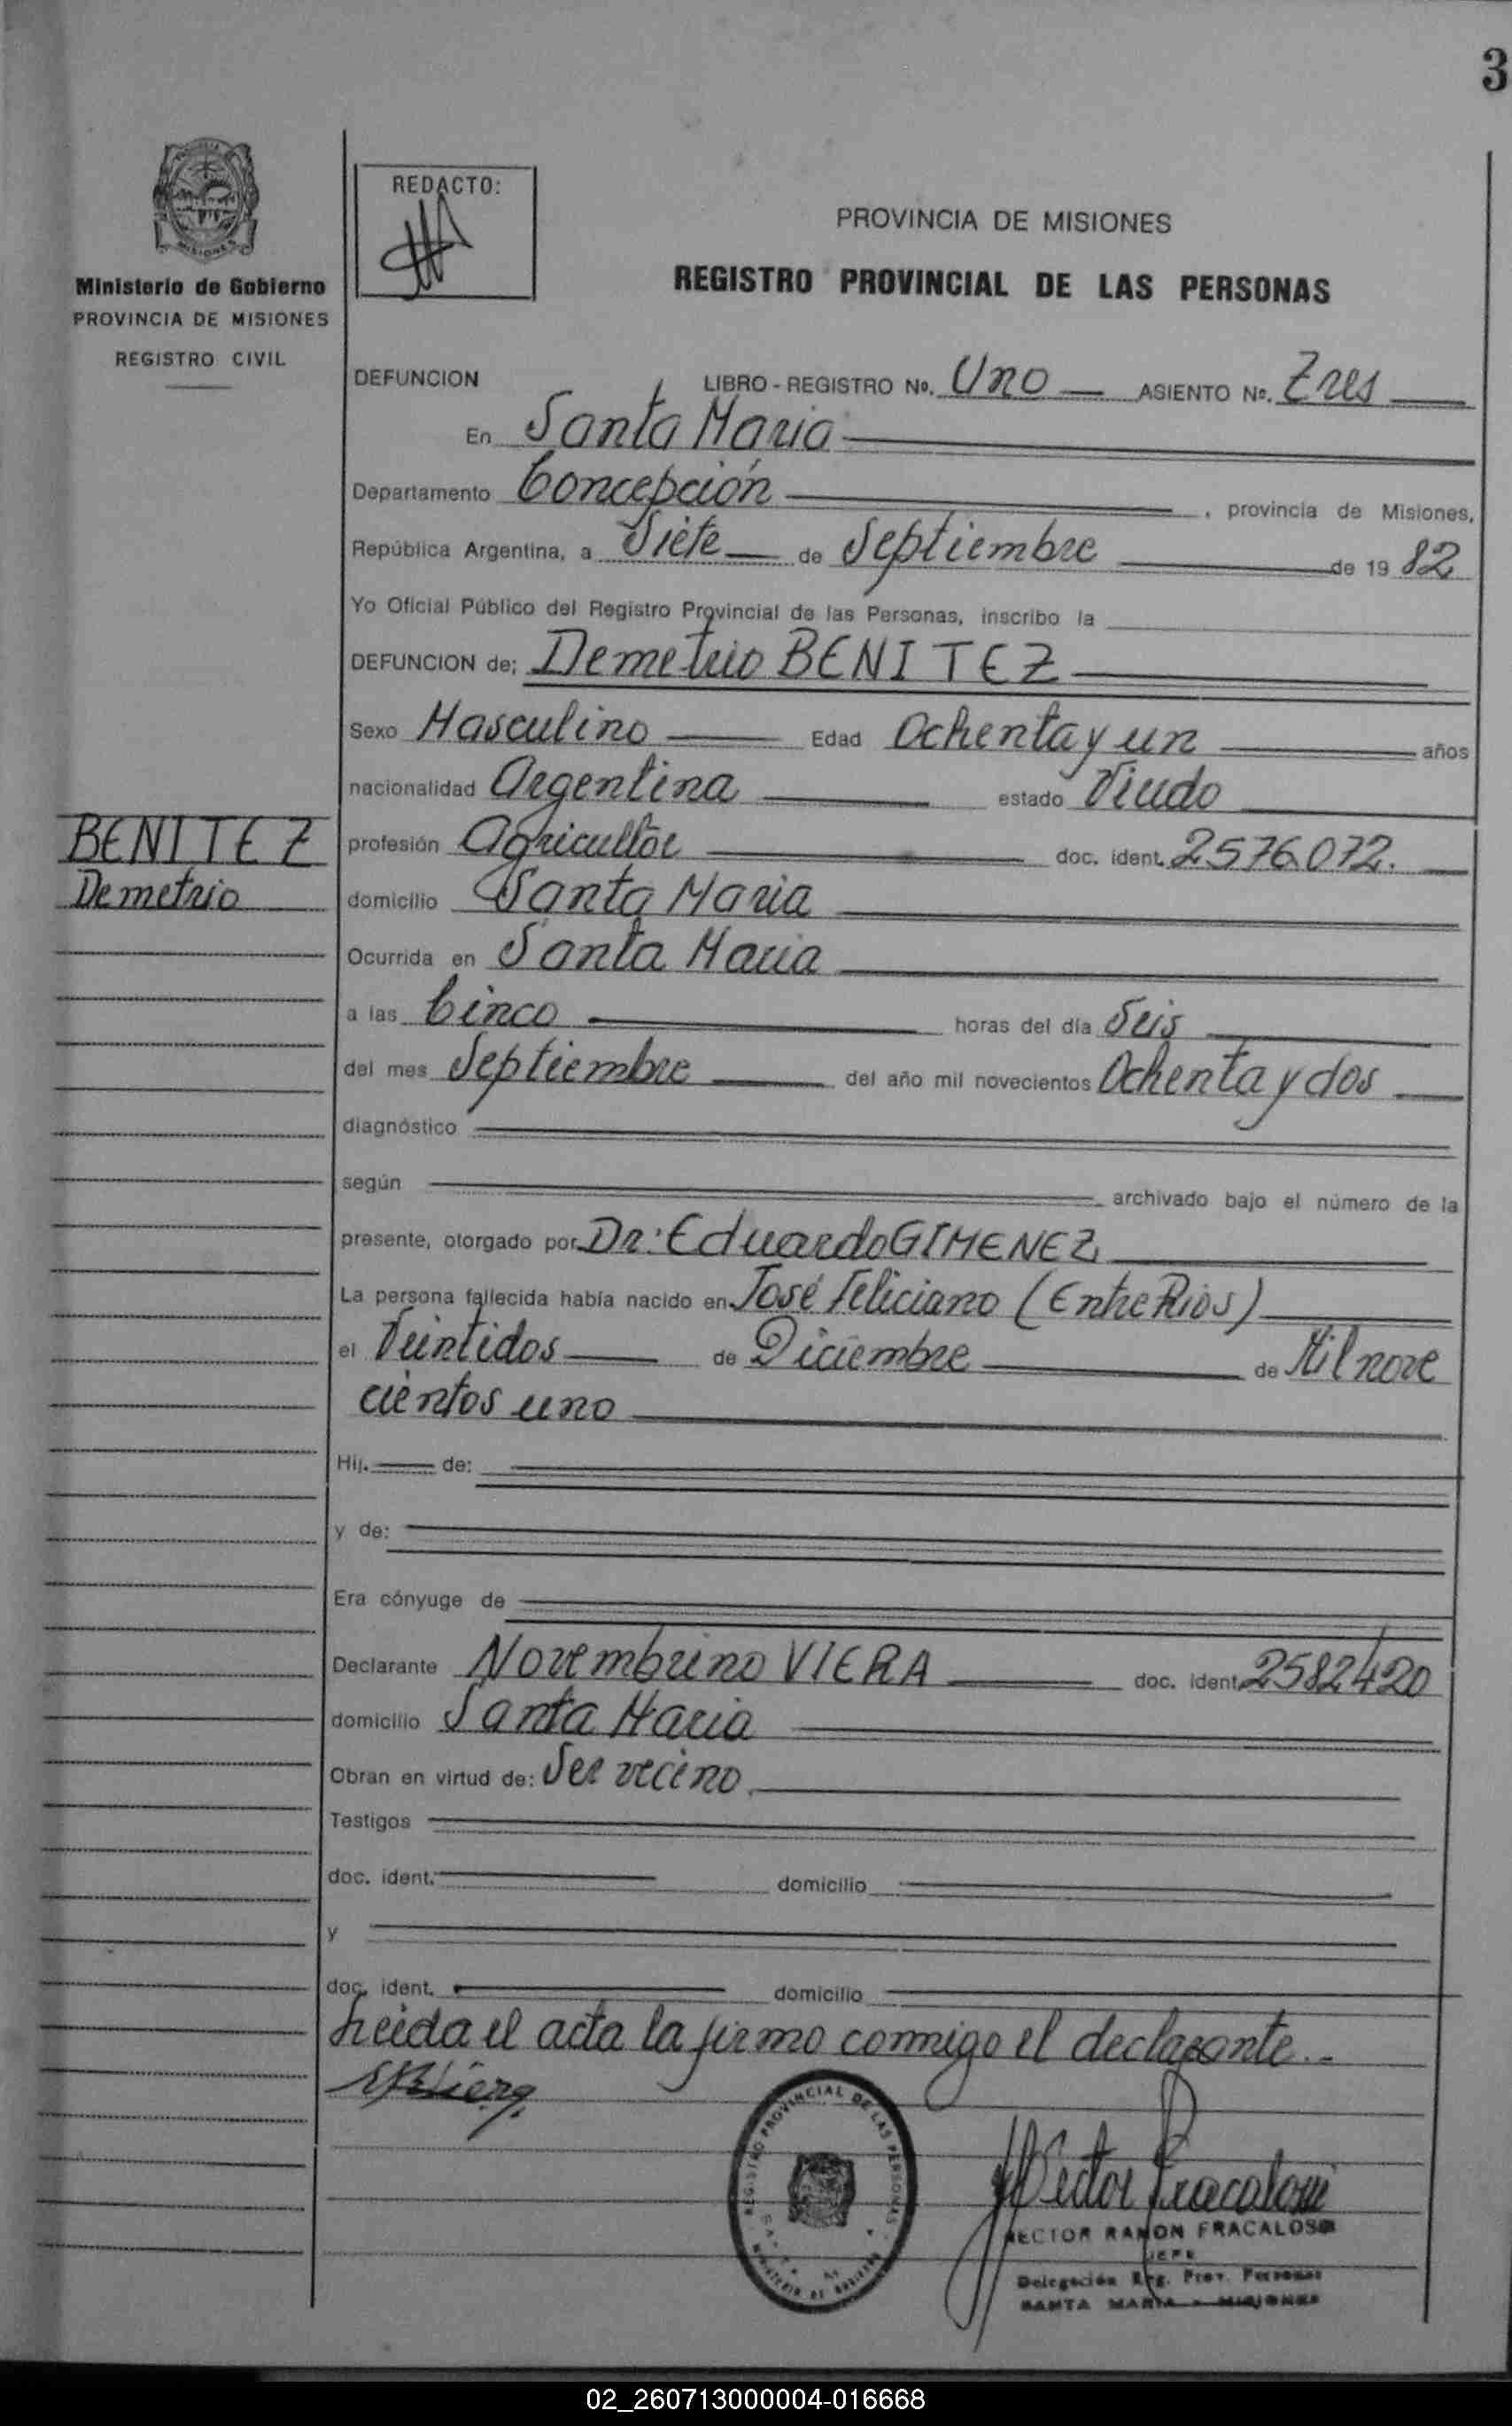 3
REDACTO:
PROVINCIA DE MISIONES
REGISTRO PROVINCIAL DE LAS PERSONAS
Ministerio de Gobierno
PROVINCIA DE MISIONES
REGISTRO CIVIL
DEFUNCION LIBRO - REGISTRO Nº. Uno ASIENTO Nº. Tres
En Santa Maria
Departamento Concepción, provincia de Misiones,
República Argentina, a Siete de Septiembre de 19 82
Yo Oficial Público del Registro Provincial de las Personas, inscribo la
DEFUNCION de; Demetrio BENITEZ
Sexo Masculino Edad Ochenta y un años
nacionalidad Argentina estado Viudo
BENITEZ
Demetrio
profesión Agricultor doc. ident. 2576.072.
domicilio Santa Maria
Ocurrida en Santa Maria
a las Cinco horas del día Seis
del mes Septiembre del año mil novecientos Ochenta y dos
diagnóstico
según archivado bajo el número de la
presente, otorgado por Dr. Eduardo GIMENEZ
La persona fallecida había nacido en José Feliciano (Entre Rios)
el Veintidos de Diciembre de Mil nove
cientos uno
Hij. de:
y de:
Era cónyuge de
Declarante Novembrino VIERA doc. ident. 2582420
domicilio Santa Maria
Obran en virtud de: Ser vecino.
Testigos
doc. ident. domicilio
y
doc. ident. domicilio
Leida el acta la firmo conmigo el declarante.-
REGISTRO PROVINCIAL DE LAS PERSONAS
Hector Fracalossi
HECTOR RAMON FRACALOSSI
JEFE
Delegación Reg. Prov. Personas
SANTA MARIA - MISIONES
02_260713000004-016668